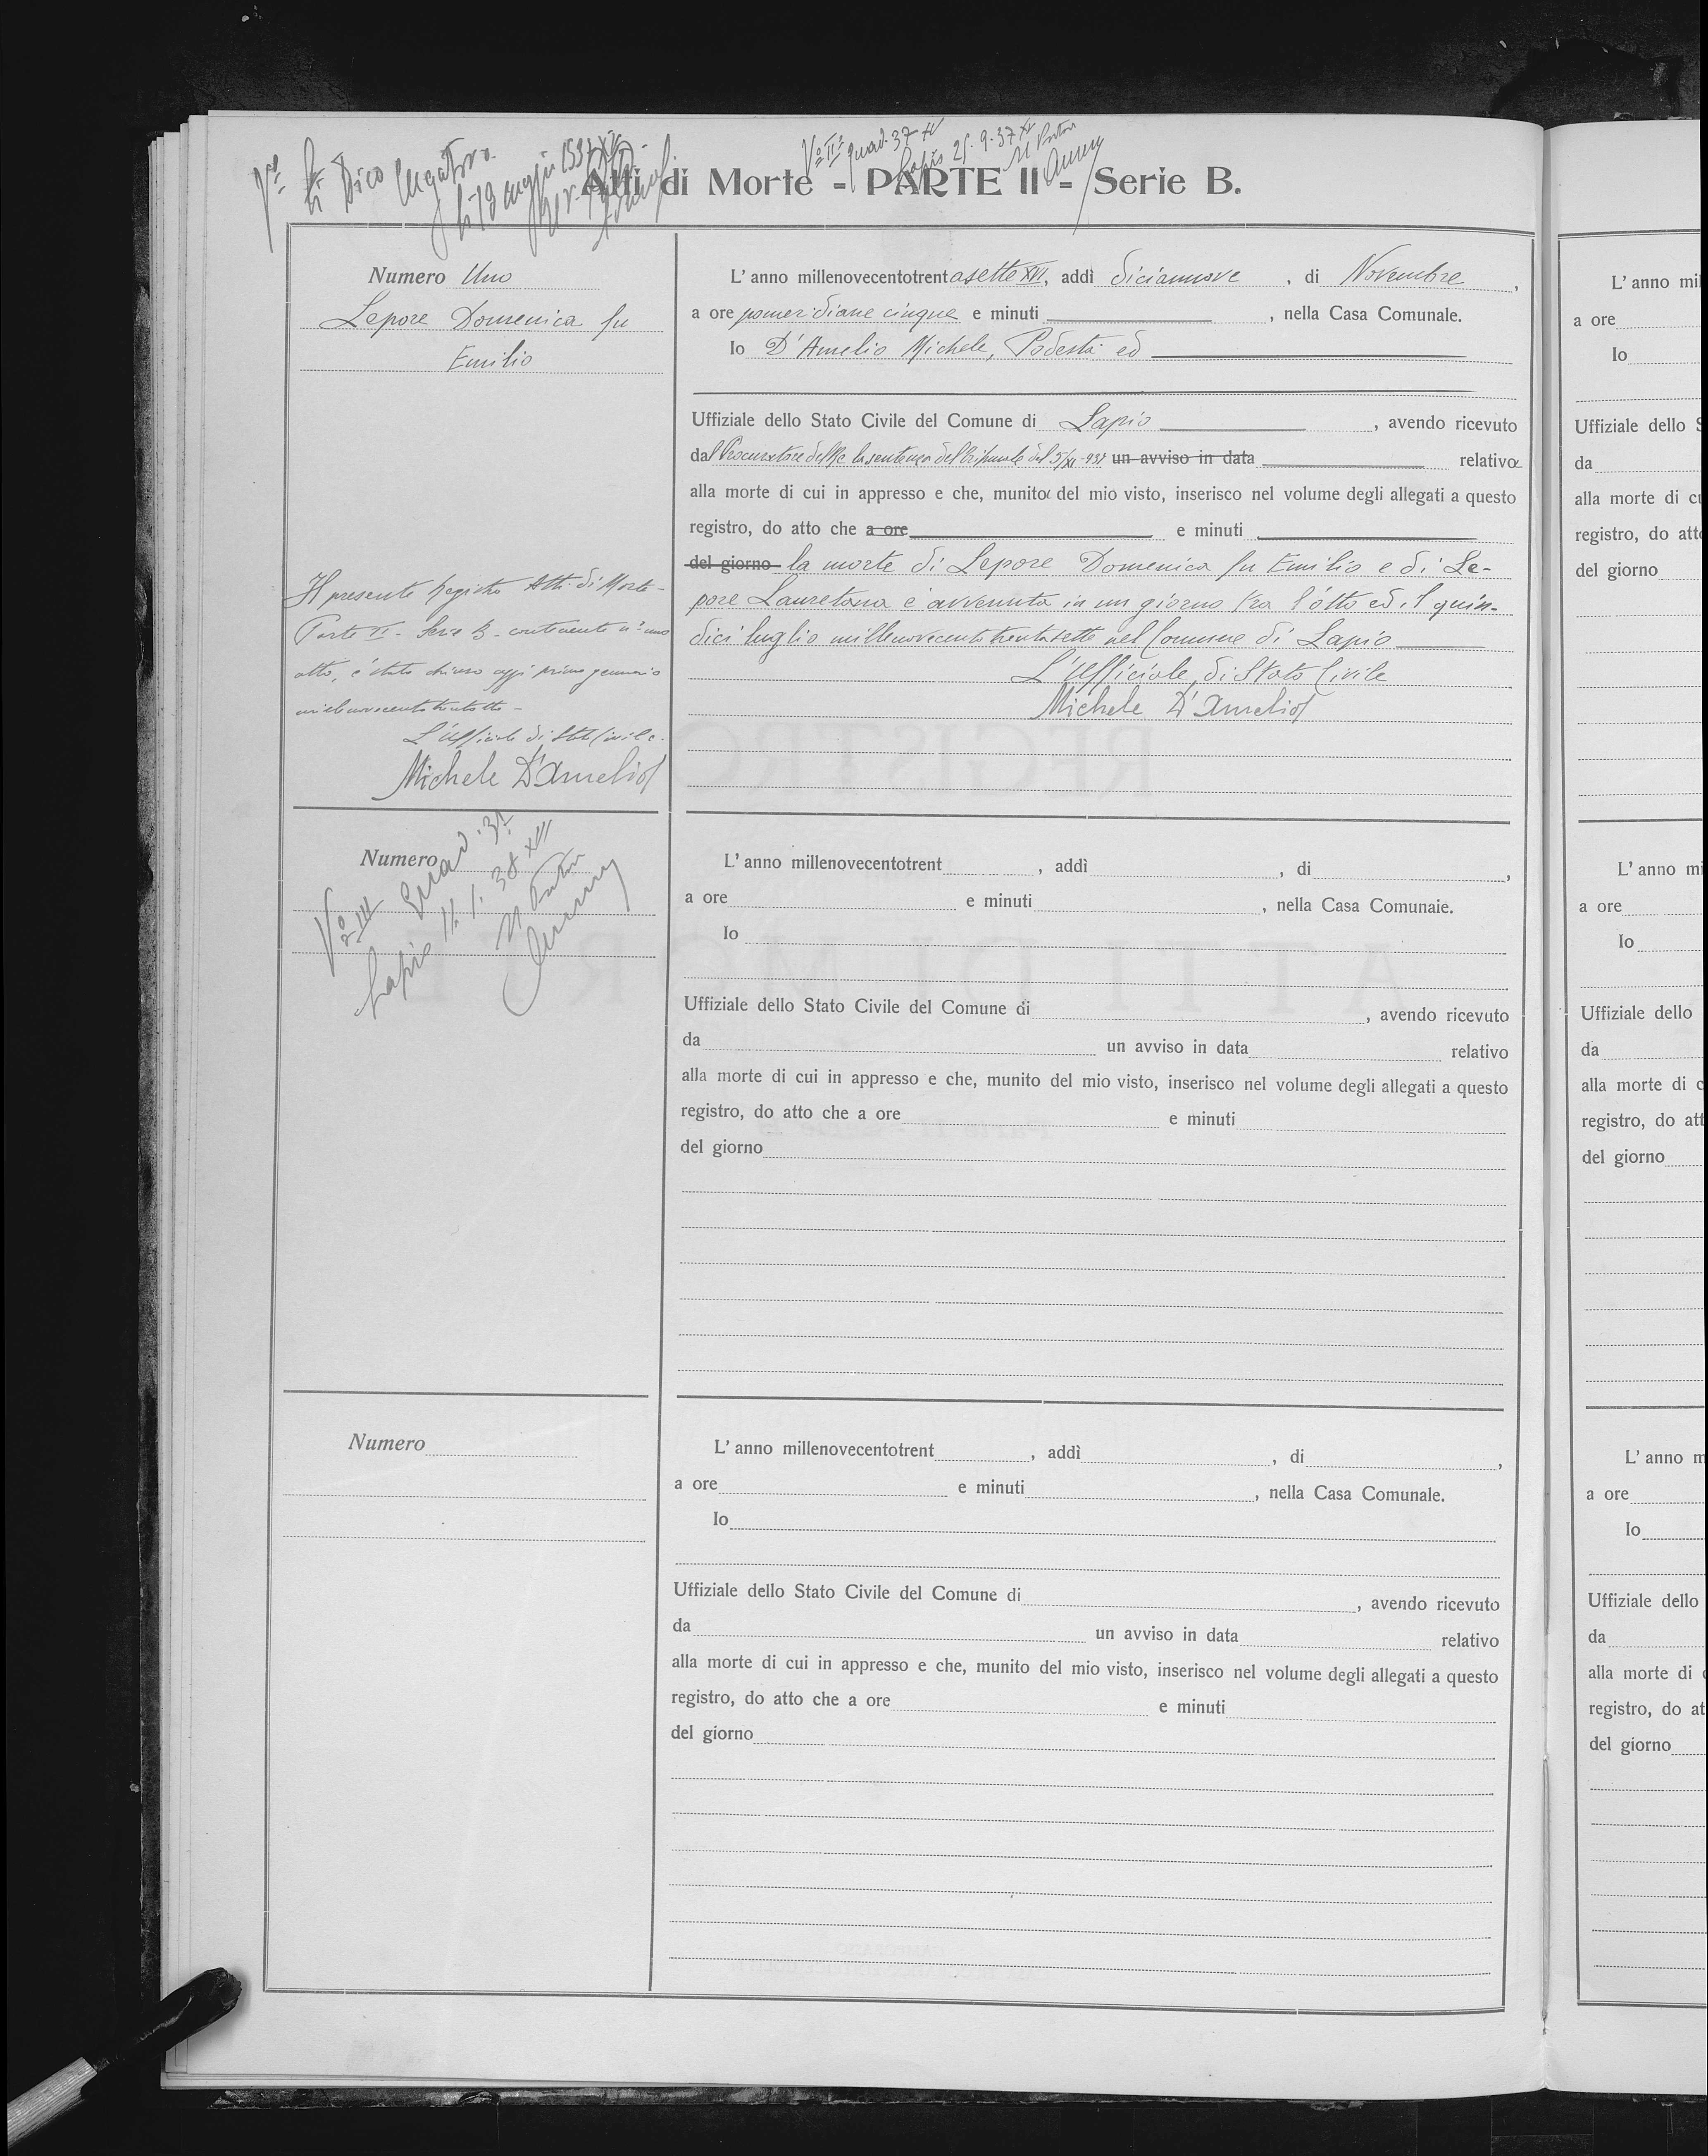 Vº IIº quad. 37 XV
Lapio 25. 9. 37 XV
Atti di Morte - PARTE II - Serie B.
Numero Uno
Lepore Domenica fu
Emilio
Il presente Registro Atti di Morte -
Parte II - Serie B - contenente nº uno
atto, è stato chiuso oggi primo gennaio
millenovecentotrentotto -
L'Ufficiale di Stato Civile.
Michele D'Amelio
L' anno millenovecentotrentasette XVI, addì diciannove, di Novembre,
a ore pomeridiane cinque e minuti, nella Casa Comunale.
Io D'Amelio Michele, Podestà ed
Uffiziale dello Stato Civile del Comune di Lapio, avendo ricevuto
dal Procuratore del Re la sentenza del tribunale del 5/XI-937 un avviso in data relativa
alla morte di cui in appresso e che, munita del mio visto, inserisco nel volume degli allegati a questo
registro, do atto che a ore e minuti
del giorno la morte di Lepore Domenica fu Emilio e di Le-
pore Lauretana è avvenuta in un giorno tra l'otto ed il quin-
dici luglio millenovecentotrentasette nel Comune di Lapio
L'Ufficiale di Stato Civile
Michele D'Amelio
Numero
Vº III Quad. 37
Lapio 11. 1. 38 XVI
L' anno millenovecentotrent, addì, di,
a ore e minuti, nella Casa Comunaie.
Io
Uffiziale dello Stato Civile del Comune di, avendo ricevuto
da un avviso in data relativo
alla morte di cui in appresso e che, munito del mio visto, inserisco nel volume degli allegati a questo
registro, do atto che a ore e minuti
del giorno
Numero
L' anno millenovecentotrent, addì, di,
a ore e minuti, nella Casa Comunale.
Io
Uffiziale dello Stato Civile del Comune di, avendo ricevuto
da un avviso in data relativo
alla morte di cui in appresso e che, munito del mio visto, inserisco nel volume degli allegati a questo
registro, do atto che a ore e minuti
del giorno
L' anno
a ore
Io
Uffiziale dello
da
alla morte di
registro, do
del giorno
L' anno
a ore
Io
Uffiziale dello
da
alla morte di
registro, do
del giorno
L' anno
a ore
Io
Uffiziale dello
da
alla morte di
registro, do
del giorno